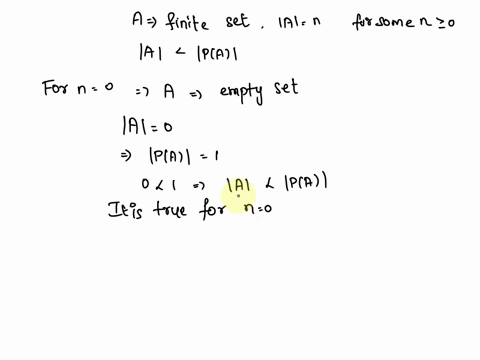 A => finite set. |A| = n for some n ≥ 0
|A| < |P(A)|
For n = 0 => A => empty set
|A| = 0
=> |P(A)| = 1
0 < 1 => |A| < |P(A)|
It is true for n = 0